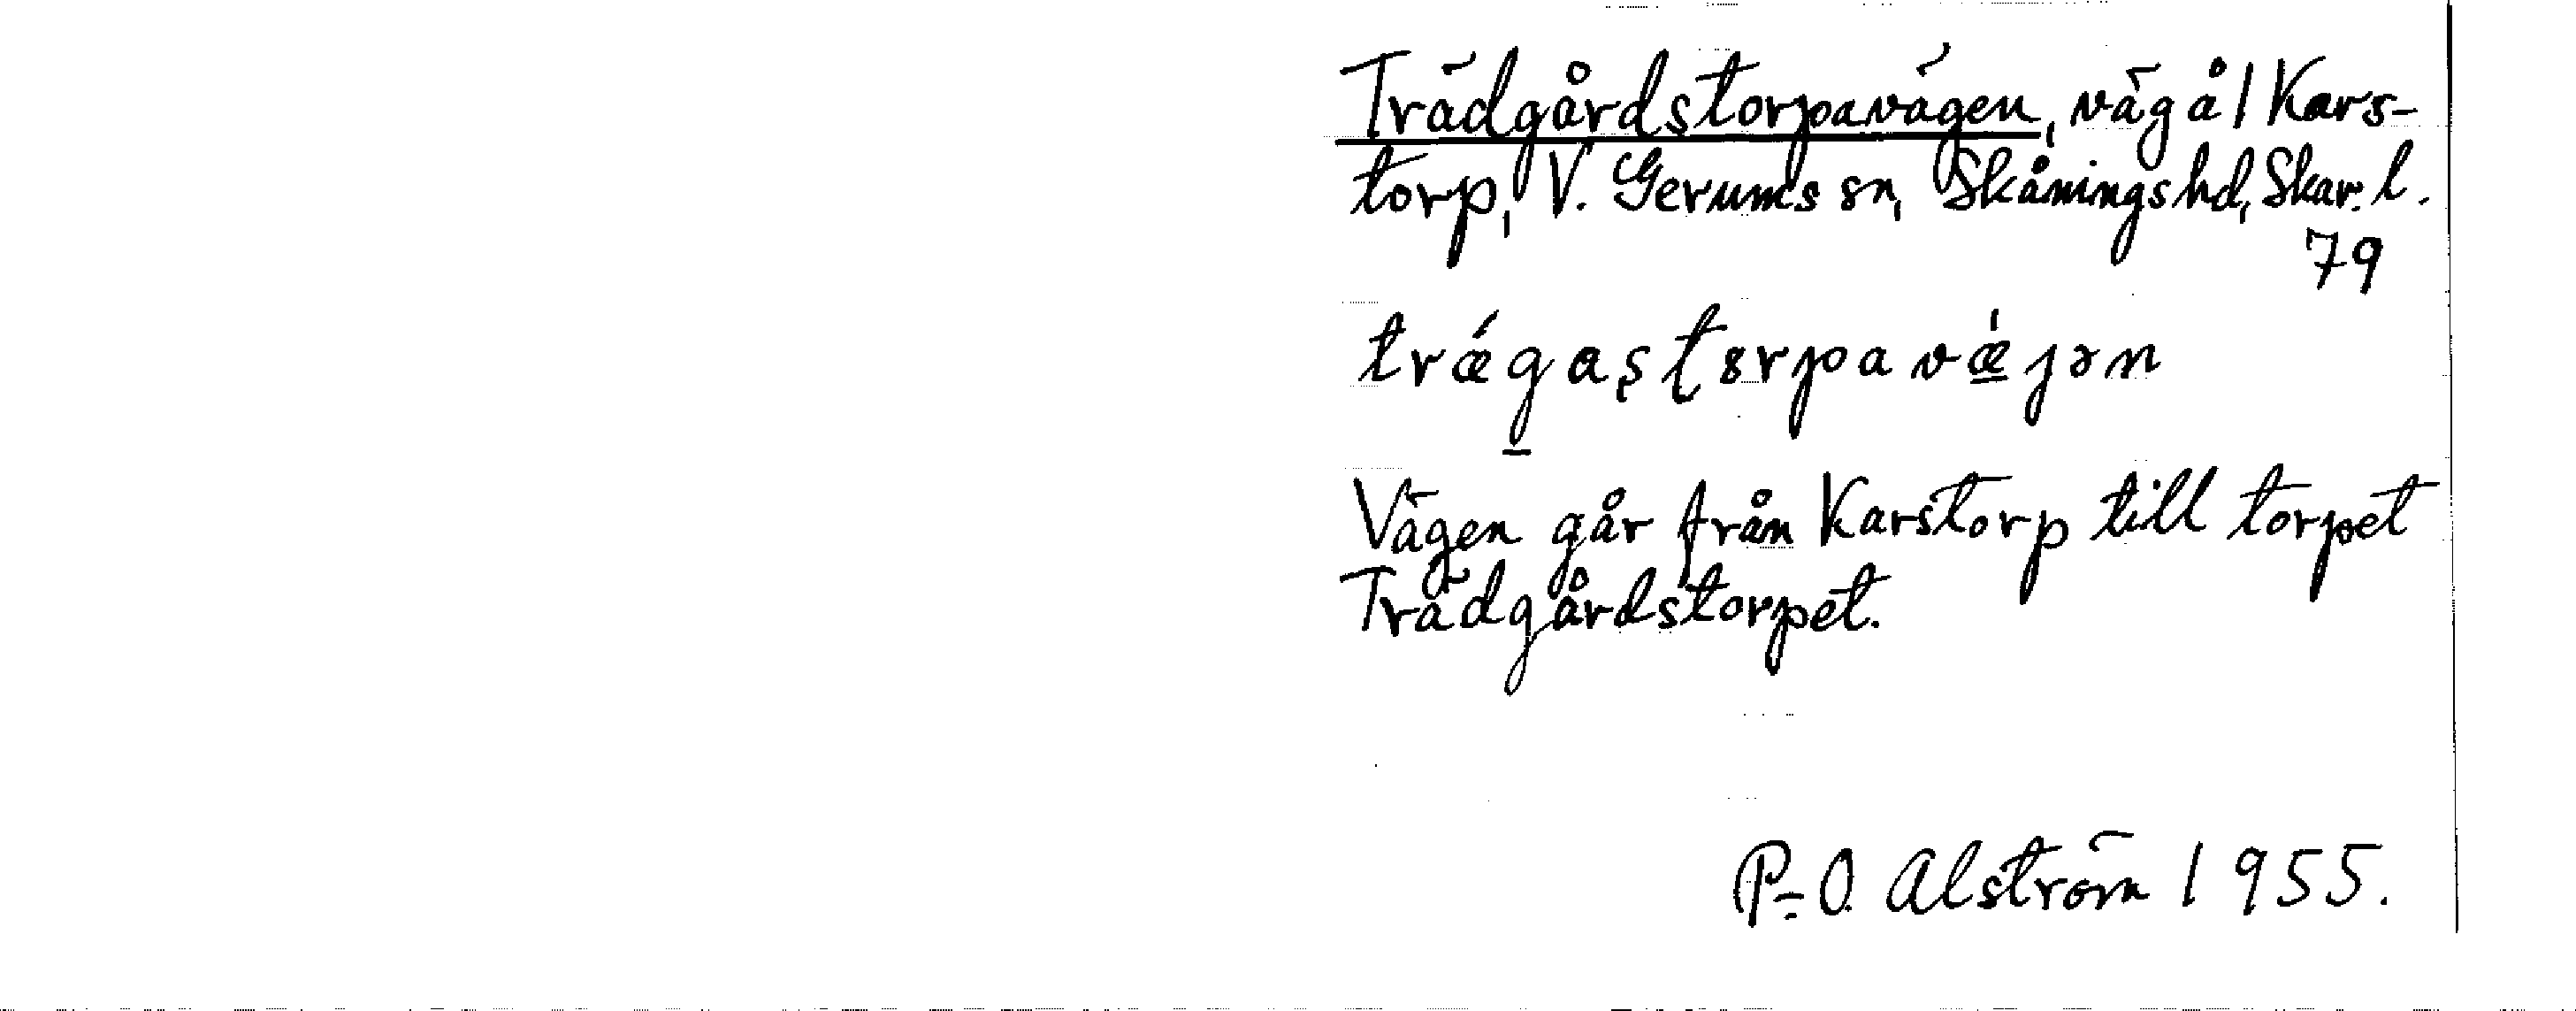 Trädgårdstorpavägen, väg å 1 Kars-
torp, V. Gerums sn, Skånings hd, Skar. l.
79
trǽg̲aʂʈ8rpavǽ̲jən
Vägen går från Karstorp till torpet
Trädgårdstorpet.
P.-O. Alström 1955.